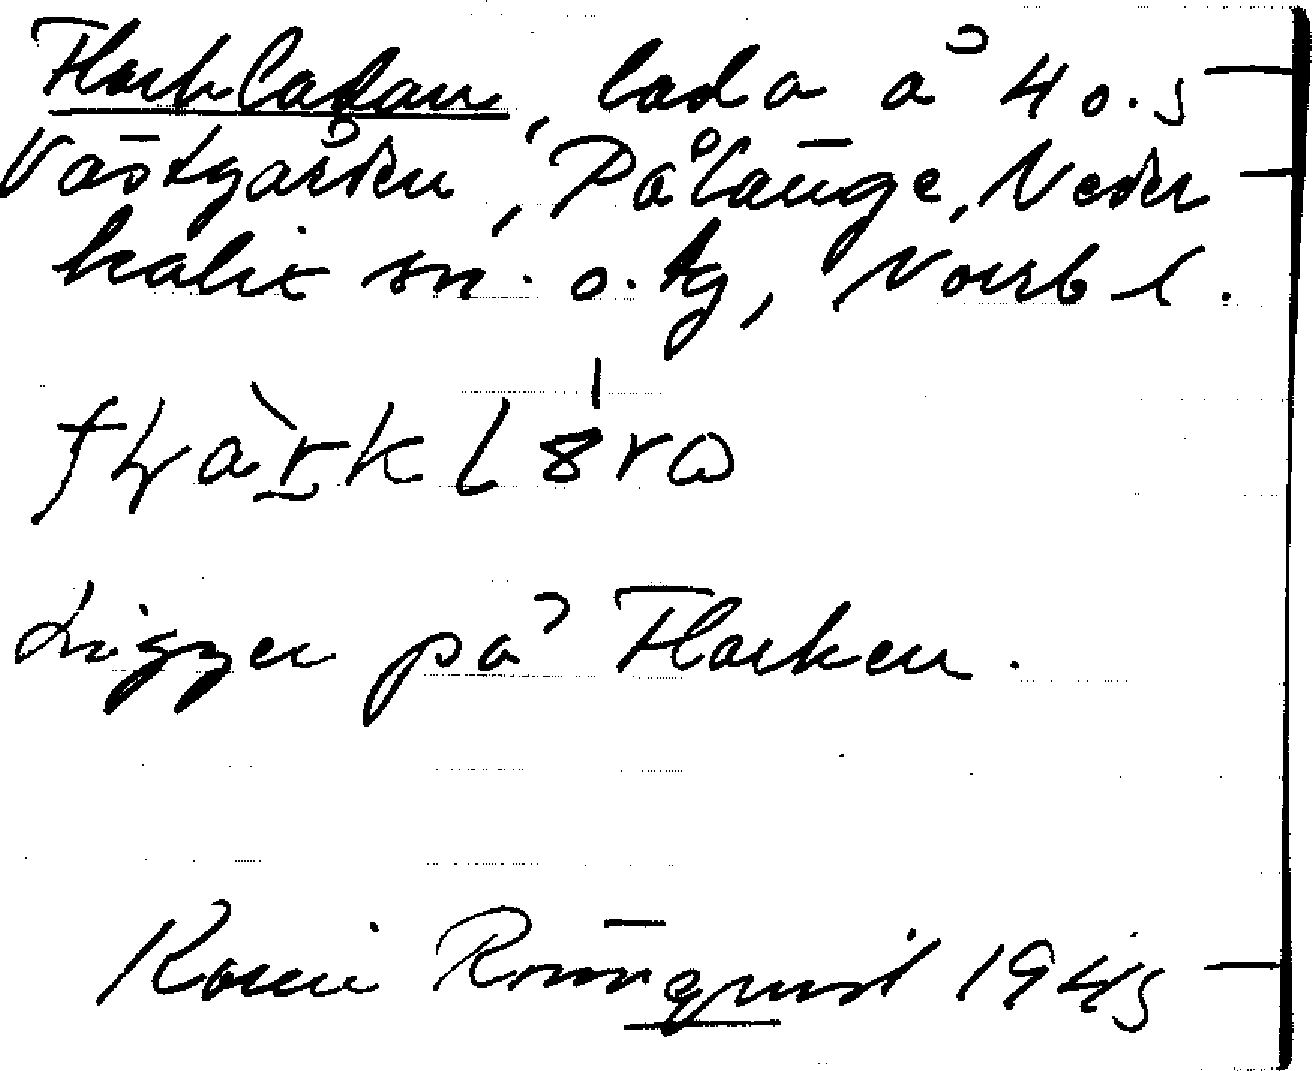 Flarkladan, lada å 4 o. 5
Västgården, Pålänge, Neder
kalix sn. o. tg, Norrb l.
Ligger på Flarken.
Rönnquist 1945